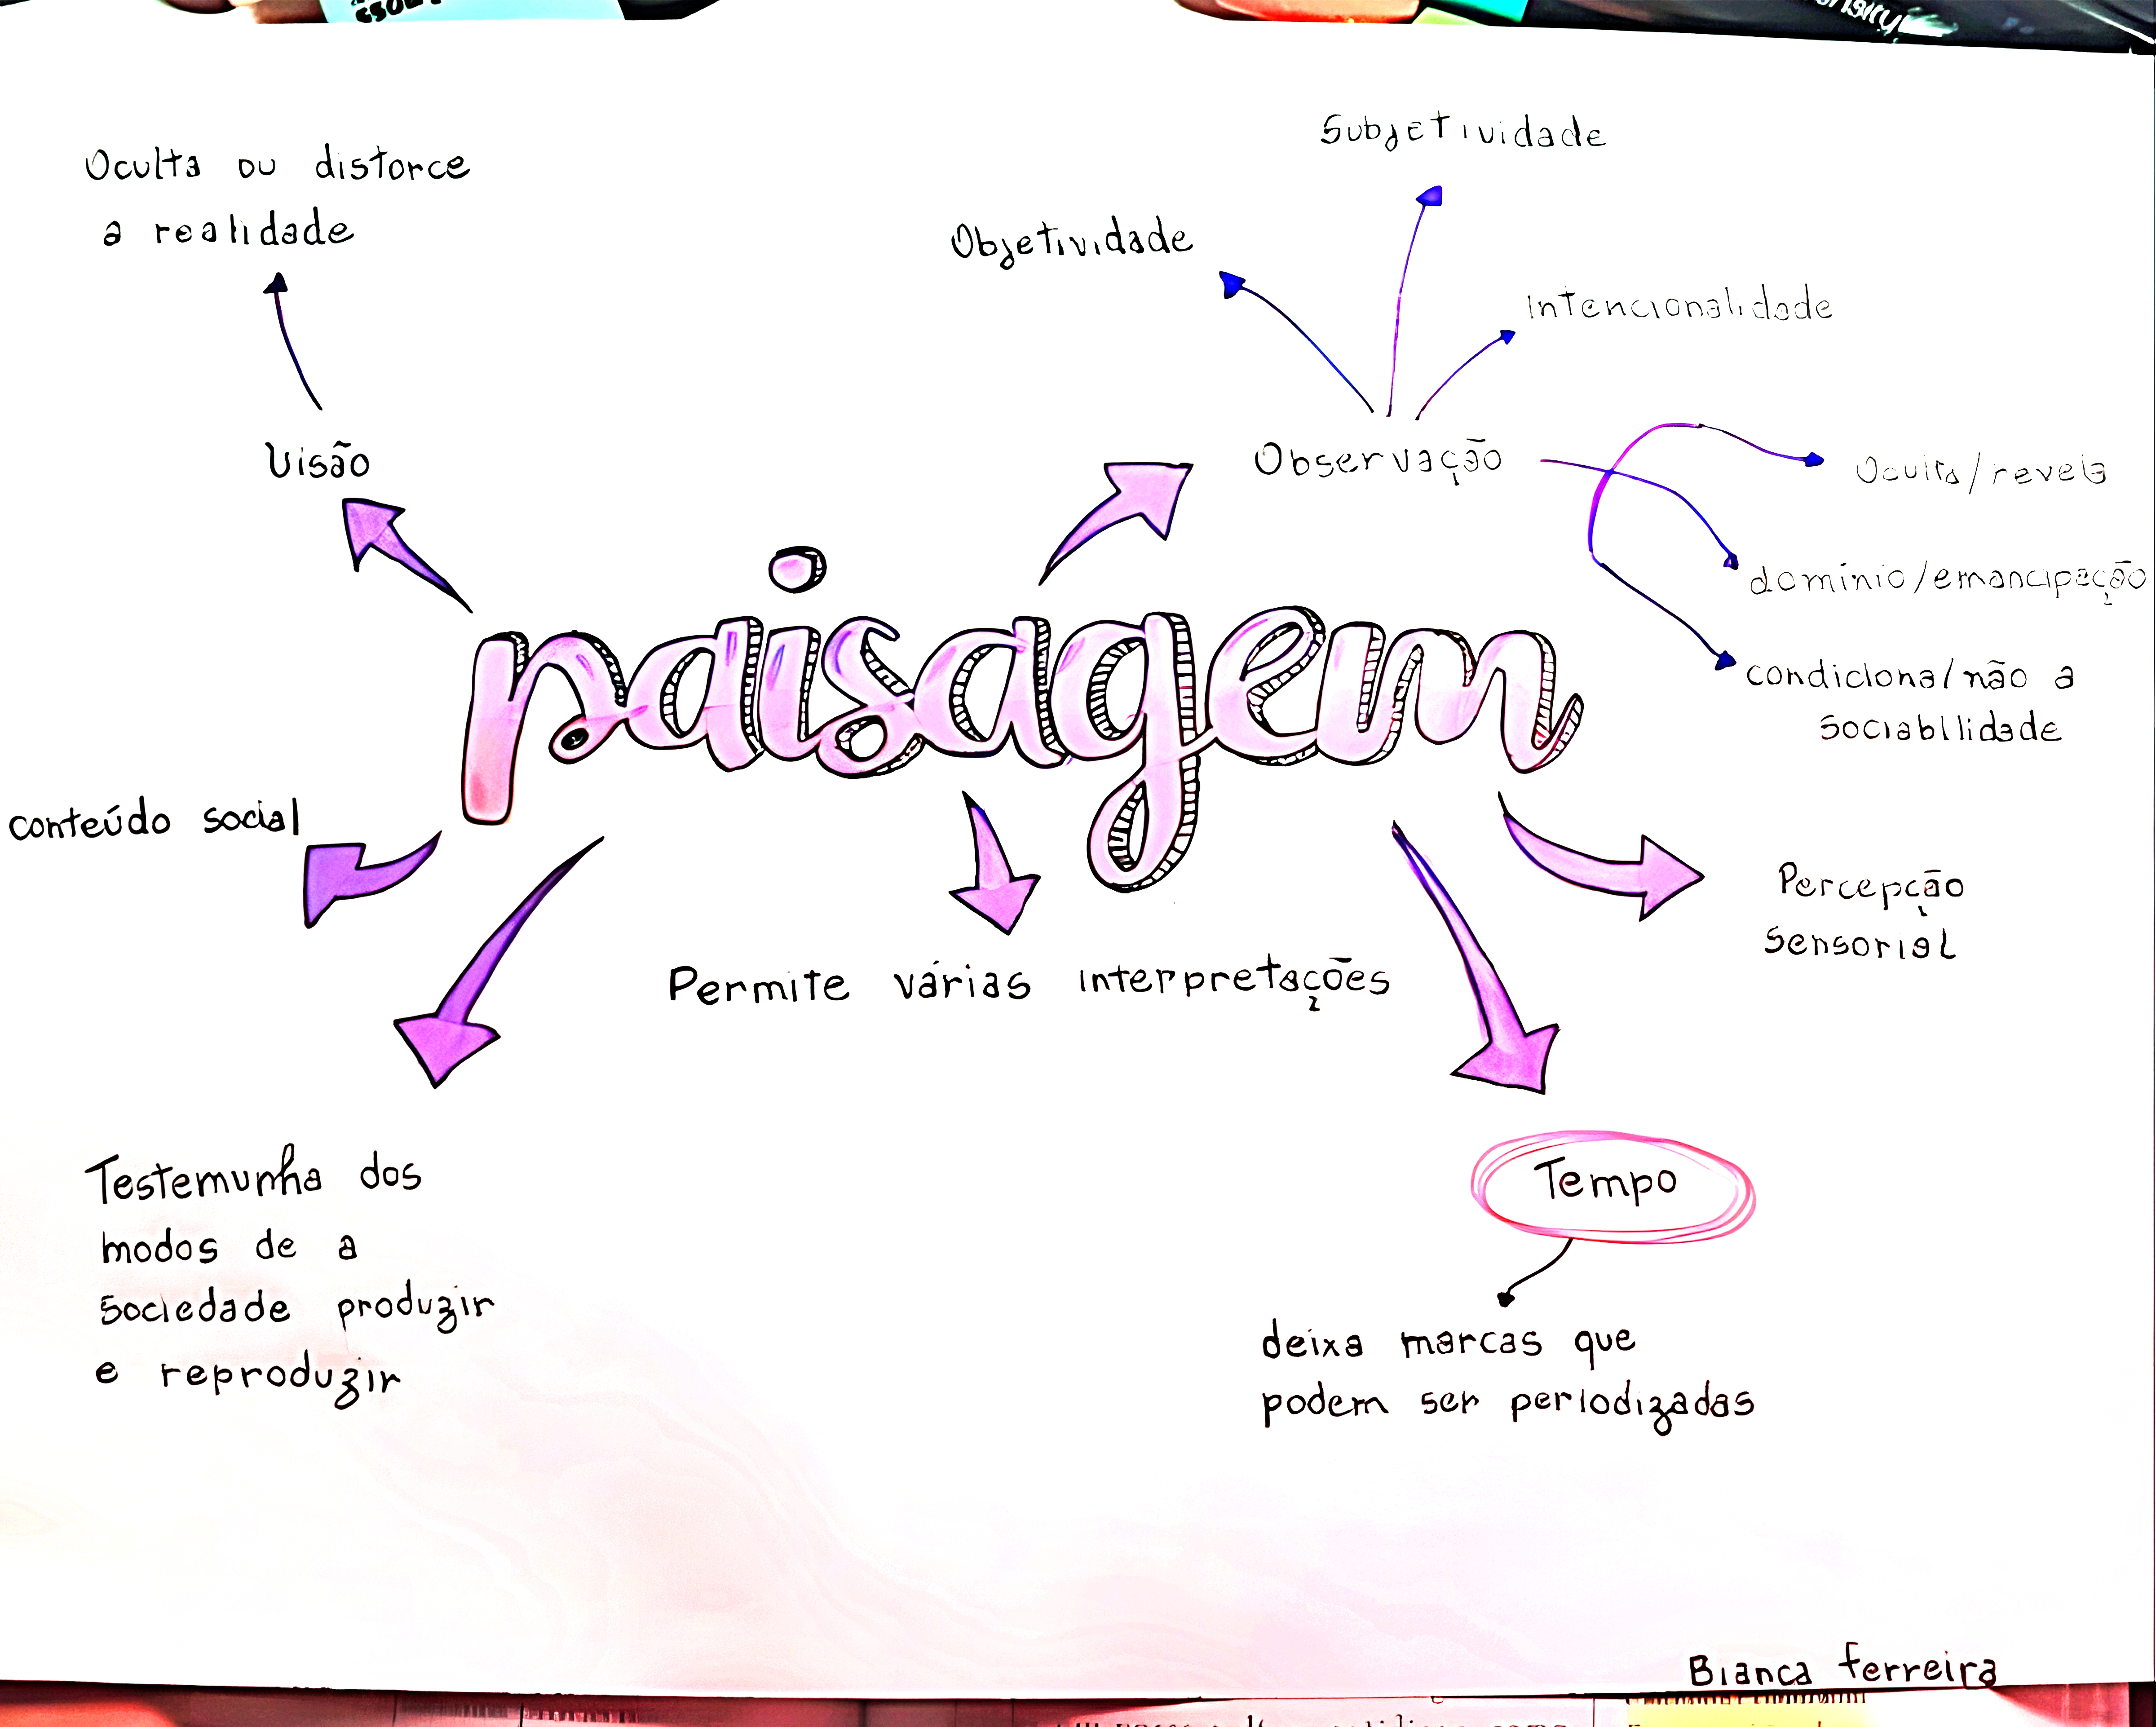 Subjetividade
Oculta ou distorce
a realidade
Objetividade
Intencionalidade
Visão
Observação
Oculta/revela
domínio/emancipação
condiciona/não a
sociabilidade
paisagem
conteúdo social
Percepção
sensorial
Permite várias interpretações
Testemunha dos
modos de a
sociedade produzir
e reproduzir
Tempo
deixa marcas que
podem ser periodizadas
Bianca Ferreira